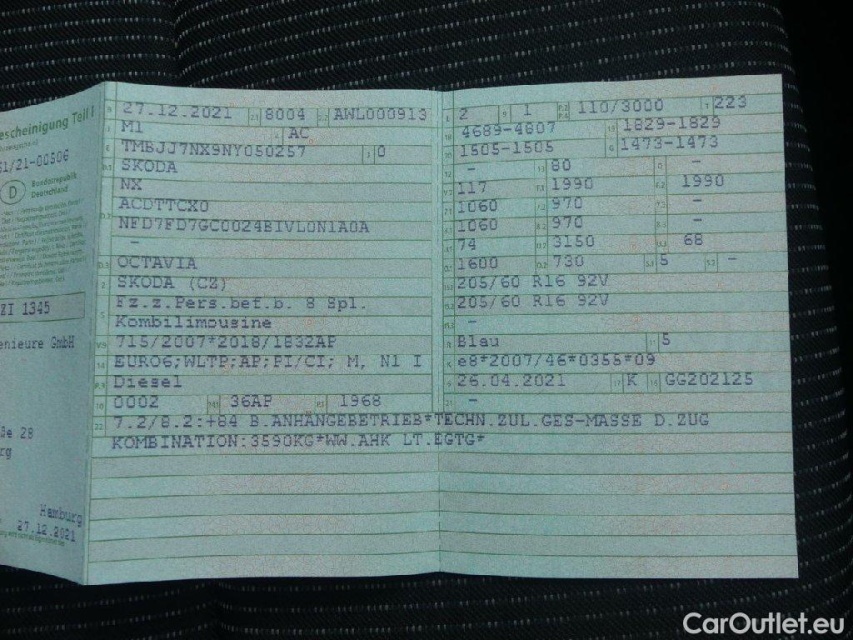 escheinigung Teil I
51/21-00506
D
Bundesrepublik
Deutschland
ZI 1345
enieure GmbH
ße 28
rg
Hamburg
27.12.2021
27.12.2021 8004 AWL000913
M1 AC
TMBJJ7NX9NY050257 0
SKODA
NX
ACDTTCX0
NFD7FD7GC0024BIVL0N1A0A
-
OCTAVIA
SKODA (CZ)
Fz.z.Pers.bef.b. 8 Spl.
Kombilimousine
715/2007*2018/1832AP
EURO6;WLTP;AP;PI/CI; M, N1 I
Diesel
0002 36AP 1968
2 1 110/3000 223
4689-4807 1829-1829
1505-1505 1473-1473
- 80 -
117 1990 1990
1060 970 -
1060 970 -
74 3150 68
1600 730 5 -
205/60 R16 92V
205/60 R16 92V
-
Blau 5
e8*2007/46*0355*09
26.04.2021 K GG202125
-
7.2/8.2:+84 B.ANHANGEBETRIEB*TECHN.ZUL.GES-MASSE D.ZUG
KOMBINATION:3590KG*WW.AHK LT.EGTG*
CarOutlet.eu